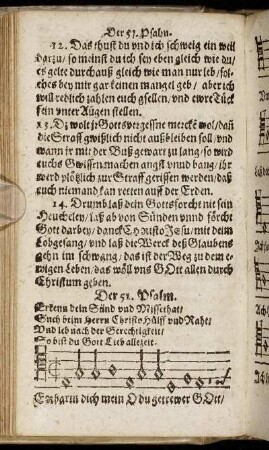 Der 51. Psalm.
12. Das thust du vnd ich schweig ein weil
darzu/ so meinst du ich sey eben gleich wie du/
es gelte durchauß gleich wie man nur leb/ sol-
ches bey mir gar keinen mangel geb/ aber ich
will redlich zahlen euch gsellen/ vnd ewre Tück
fein vnter Augen stellen.
13. Dz wolt jr Gotts vergessne mercke wol/ dañ
die Straff gwißlich nicht außbleiben soll/ vnd
wann jr mit der Buß gewart zu lang/ so wird
euchs Gwissen machen angst vnnd bang/ ihr
werd plötzlich zur Straff gerissen werden/ daß
euch niemand kan retten auff der Erden.
14. Drumb laß dein Gottsforcht nit sein
Heuchelen/ laß ab von Sünden vnnd förcht
Gott darbey/ danck CHristo JEsu/ mit dem
Lobgesang/ vnd laß die Werck deß Glaubens
gehn im schwang/ das ist der Weg zu dem e-
wigen Leben/ das wöll vns GOtt allen durch
Christum geben.
Der 51. Psalm.
Erkenn dein Sünd vnd Missethat/
Such beim Herrn Christo Hülff vnd Raht/
Vnd leb nach der Gerechtigkeit/
So bist du Gott Lieb allezeit.
Erbarm dich mein O du getrewer GOtt/